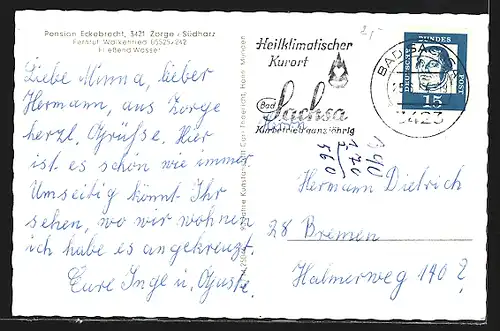 Pension Eckebrecht, 3421 Zorge / Südharz
Fernruf Walkenried 05525/242
Fließend Wasser
Liebe Minna, lieber
Hermann, aus Zorge
herzl. Grüße. Hier
ist es schön wie immer
Umseitig könnt Ihr
sehen, wo wir wohnen
ich habe es angekreuzt.
Eure Inge u. Guste.
2,-
Heilklimatischer
Kurort
Bad
Sachsa
Kurbetrieb ganzjährig
BAD SACHSA
3423
DEUTSCHE BUNDESPOST
15
170
560
Hermann Dietrich
28 Bremen
Halmerweg 140?